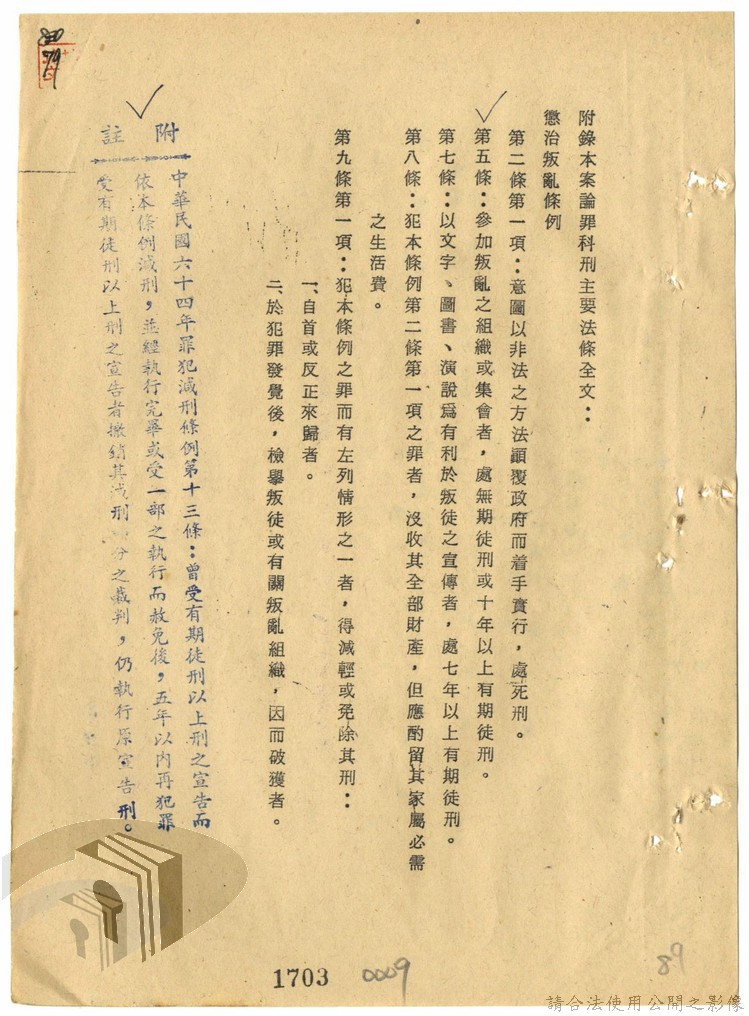 附錄本案論罪科刑主要法條全文：
懲治叛亂條例
第二條第一項：意圖以非法之方法顚覆政府而着手實行，處死刑。
第五條：參加叛亂之組織或集會者，處無期徒刑或十年以上有期徒刑。
第七條：以文字、圖書、演說爲有利於叛徒之宣傳者，處七年以上有期徒刑。
第八條：犯本條例第二條第一項之罪者，沒收其全部財產，但應酌留其家屬必需
之生活費。
第九條第一項：犯本條例之罪而有左列情形之一者，得減輕或免除其刑：
一、自首或反正來歸者。
二、於犯罪發覺後，檢舉叛徒或有關叛亂組織，因而破獲者。
附註
中華民國六十四年罪犯減刑條例第十三條：曾受有期徒刑以上刑之宣告而
依本條例減刑，並經執行完畢或受一部之執行而赦免後，五年以內再犯罪
受有期徒刑以上刑之宣告者撤銷其減刑部分之裁判，仍執行原宣告刑。
79
1703
0009
89
請合法使用公開之影像